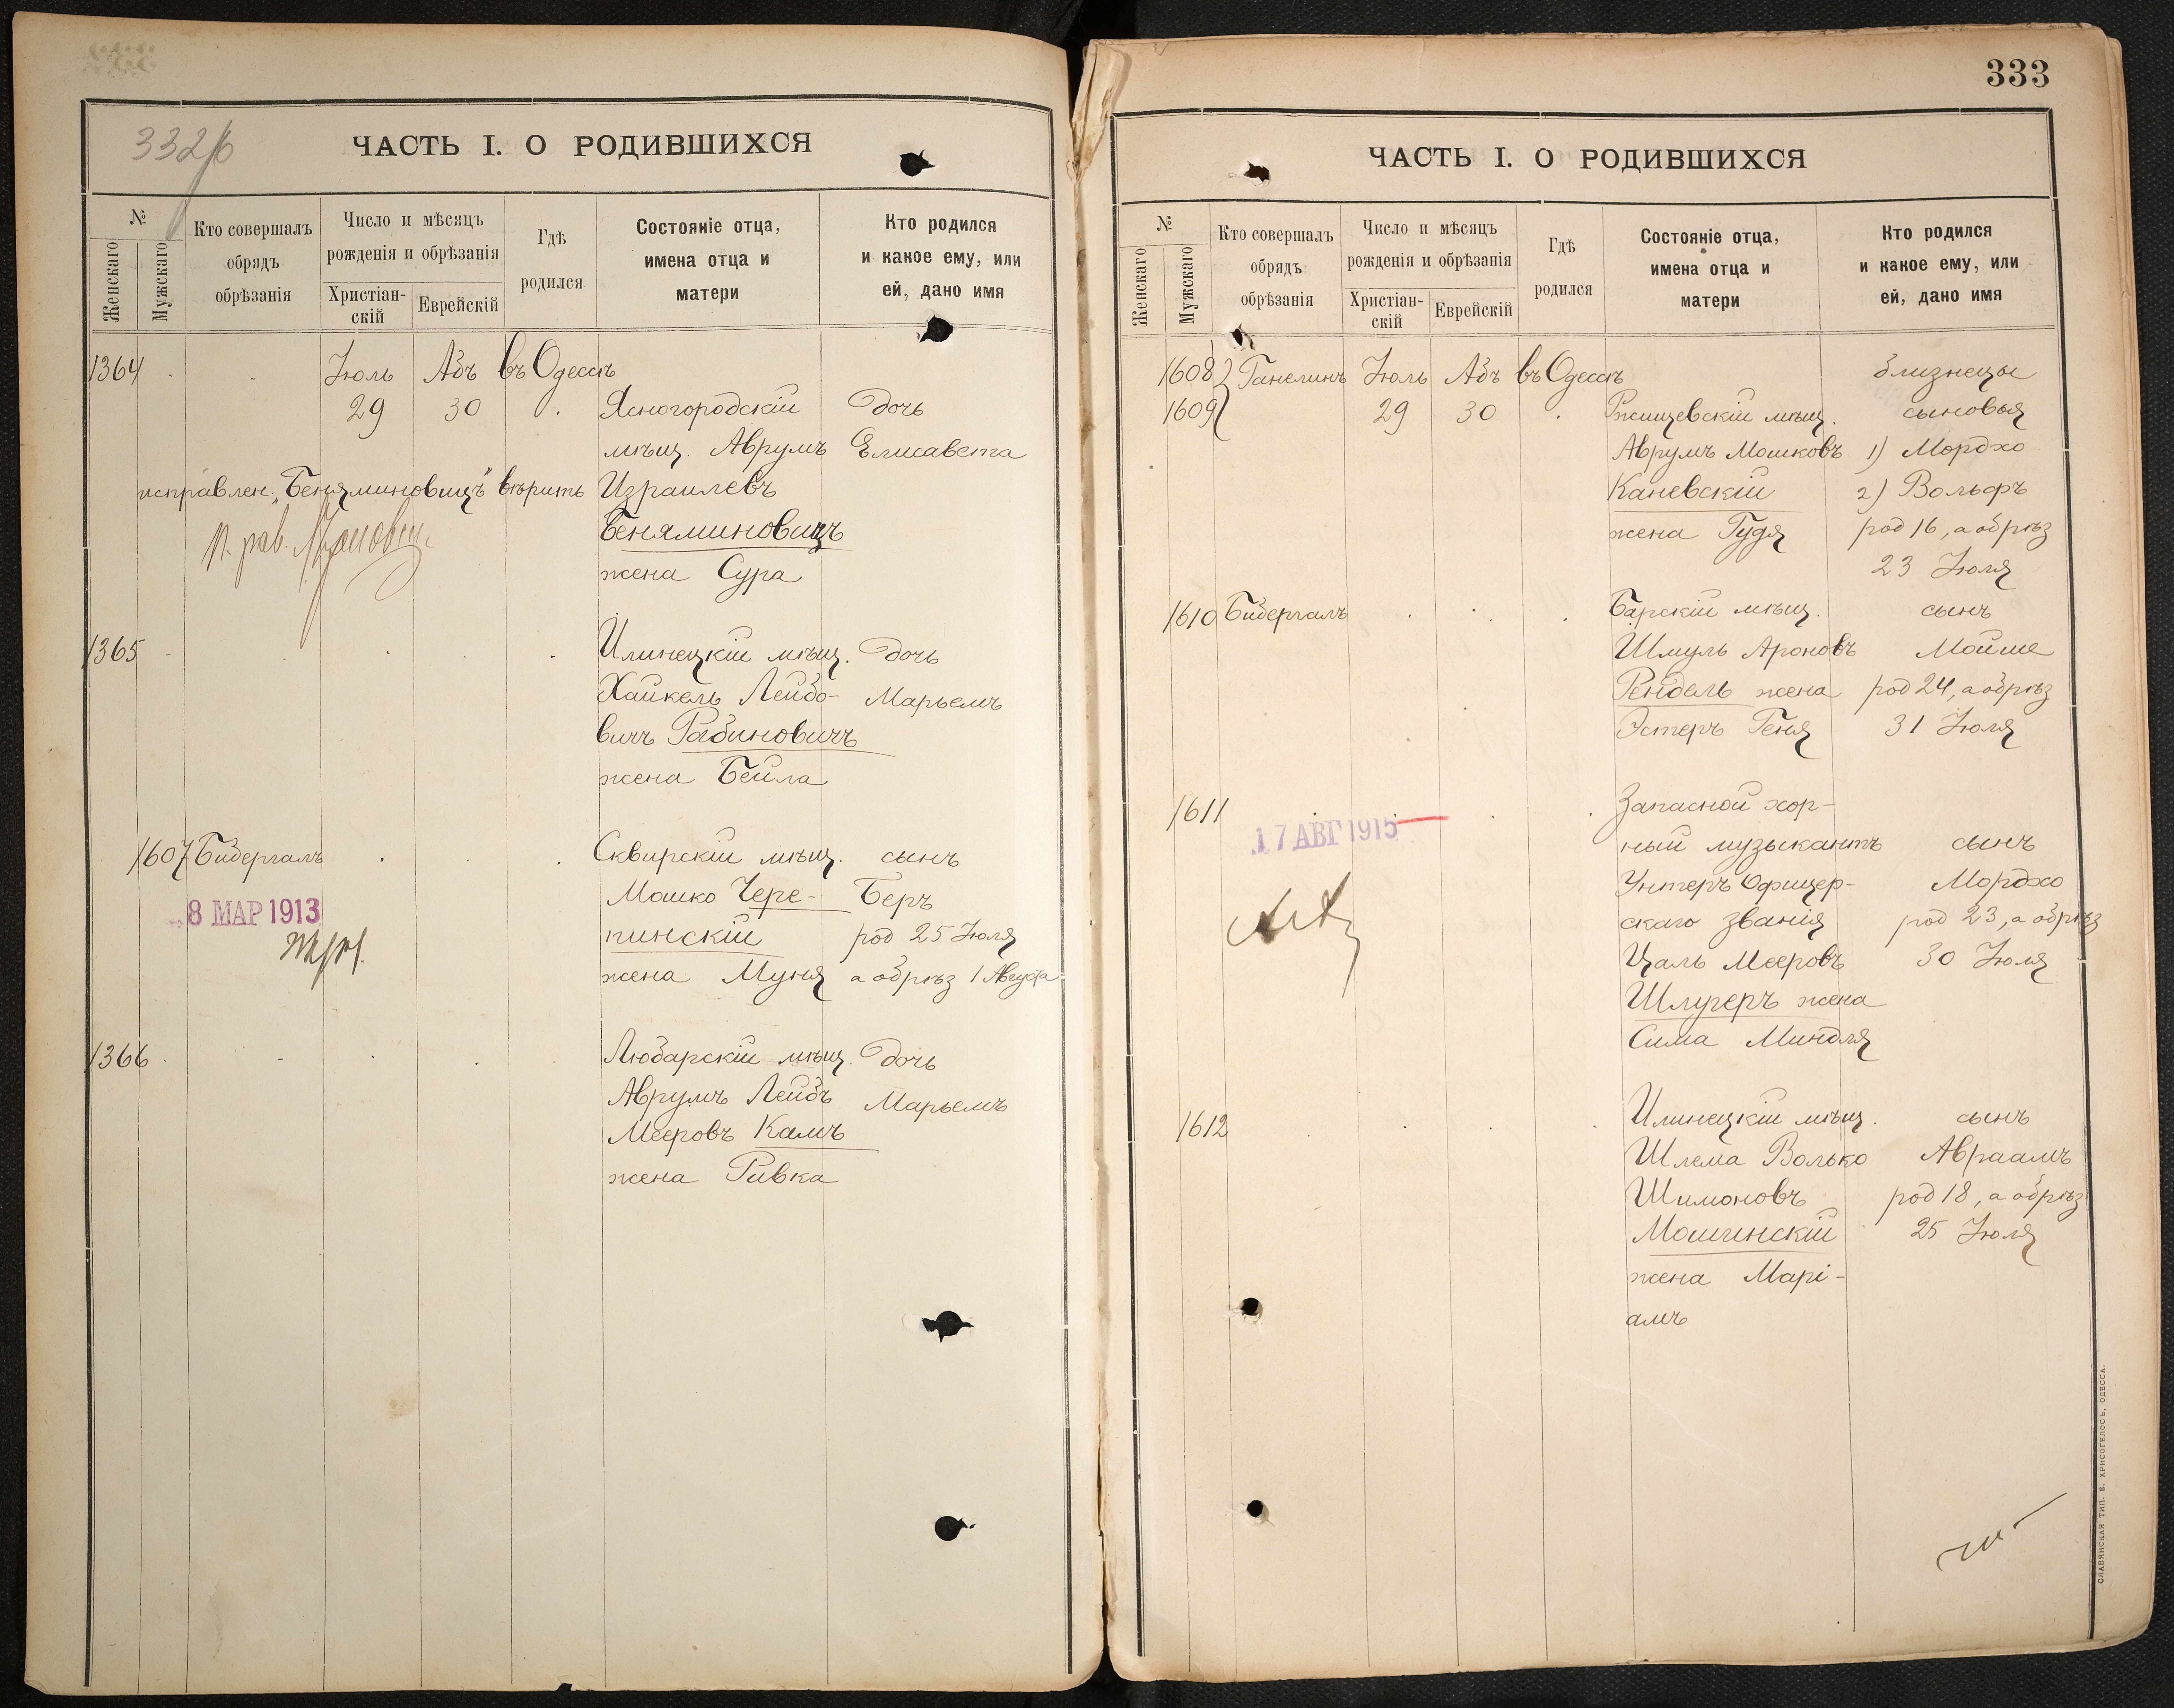 332/б
ЧАСТЬ I. О РОДИВШИХСЯ
№
Женскаго
Мужскаго
Кто совершалъ
обрядъ
обрѣзанія
Число и мѣсяцъ
рожденія и обрѣзанія
Христіан-
скій
Еврейскій
Гдѣ
родился
Состояніе отца,
имена отца и
матери
Кто родился
и какое ему, или
ей, дано имя
1364 Іюль Абъ въ Одессѣ
29 30 Ясногородскій дочь
мѣщ. Аврумъ Елисавета
исправлен. „Беняминовичъ" вѣрить Израилевъ
Беняминовичъ
жена Сура
1365 Илинецкій мѣщ. дочь
Хайкель Лейбо- Марьемъ
вичъ Рабиновичъ
жена Бейла
1607 Бидергалъ Сквирскій мѣщ. сынъ
Мошко Чере- Беръ
8 МАР 1913
пинскій род 25 Іюля
жена Муня а обрѣз 1 Августа
1366 Любарскій мѣщ. дочь
Аврумъ Лейбъ Марьемъ
Мееровъ Камъ
жена Ривка
333
ЧАСТЬ I. О РОДИВШИХСЯ
№
Женскаго
Мужскаго
Кто совершалъ
обрядъ
обрѣзанія
Число и мѣсяцъ
рожденія и обрѣзанія
Христіан-
скій
Еврейскій
Гдѣ
родился
Состояніе отца,
имена отца и
матери
Кто родился
и какое ему, или
ей, дано имя
1608 Ганелинъ Іюль Абъ въ Одессѣ близнецы
1609 29 30 Ржищевскій мѣщ. сыновья
Аврумъ Мошковъ 1) Мордхо
Каневскій 2) Вольфъ
жена Гудя род 16, а обрѣз
23 Іюля
1610 Бидергалъ Барскій мѣщ. сынъ
Шмуль Ароновъ Мойше
Рендель жена род 24, а обрѣз
Эстеръ Геня 31 Іюля
1611 Запасной хор-
17 АВГ 1915
ный музыкантъ сынъ
Унтеръ Офицер- Мордхо
скаго званія род 23, а обрѣз
Цаль Мееровъ 30 Іюля
Шлугеръ жена
Сима Миндля
1612 Илинецкій мѣщ. сынъ
Шлема Волько Авраамъ
Шимоновъ род 18, а обрѣз
Мошинскій 25 Іюля
жена Марі-
амъ
СЛАВЯНСКАЯ ТИП. Е. ХРИСОГЕЛОСЪ, ОДЕССА.